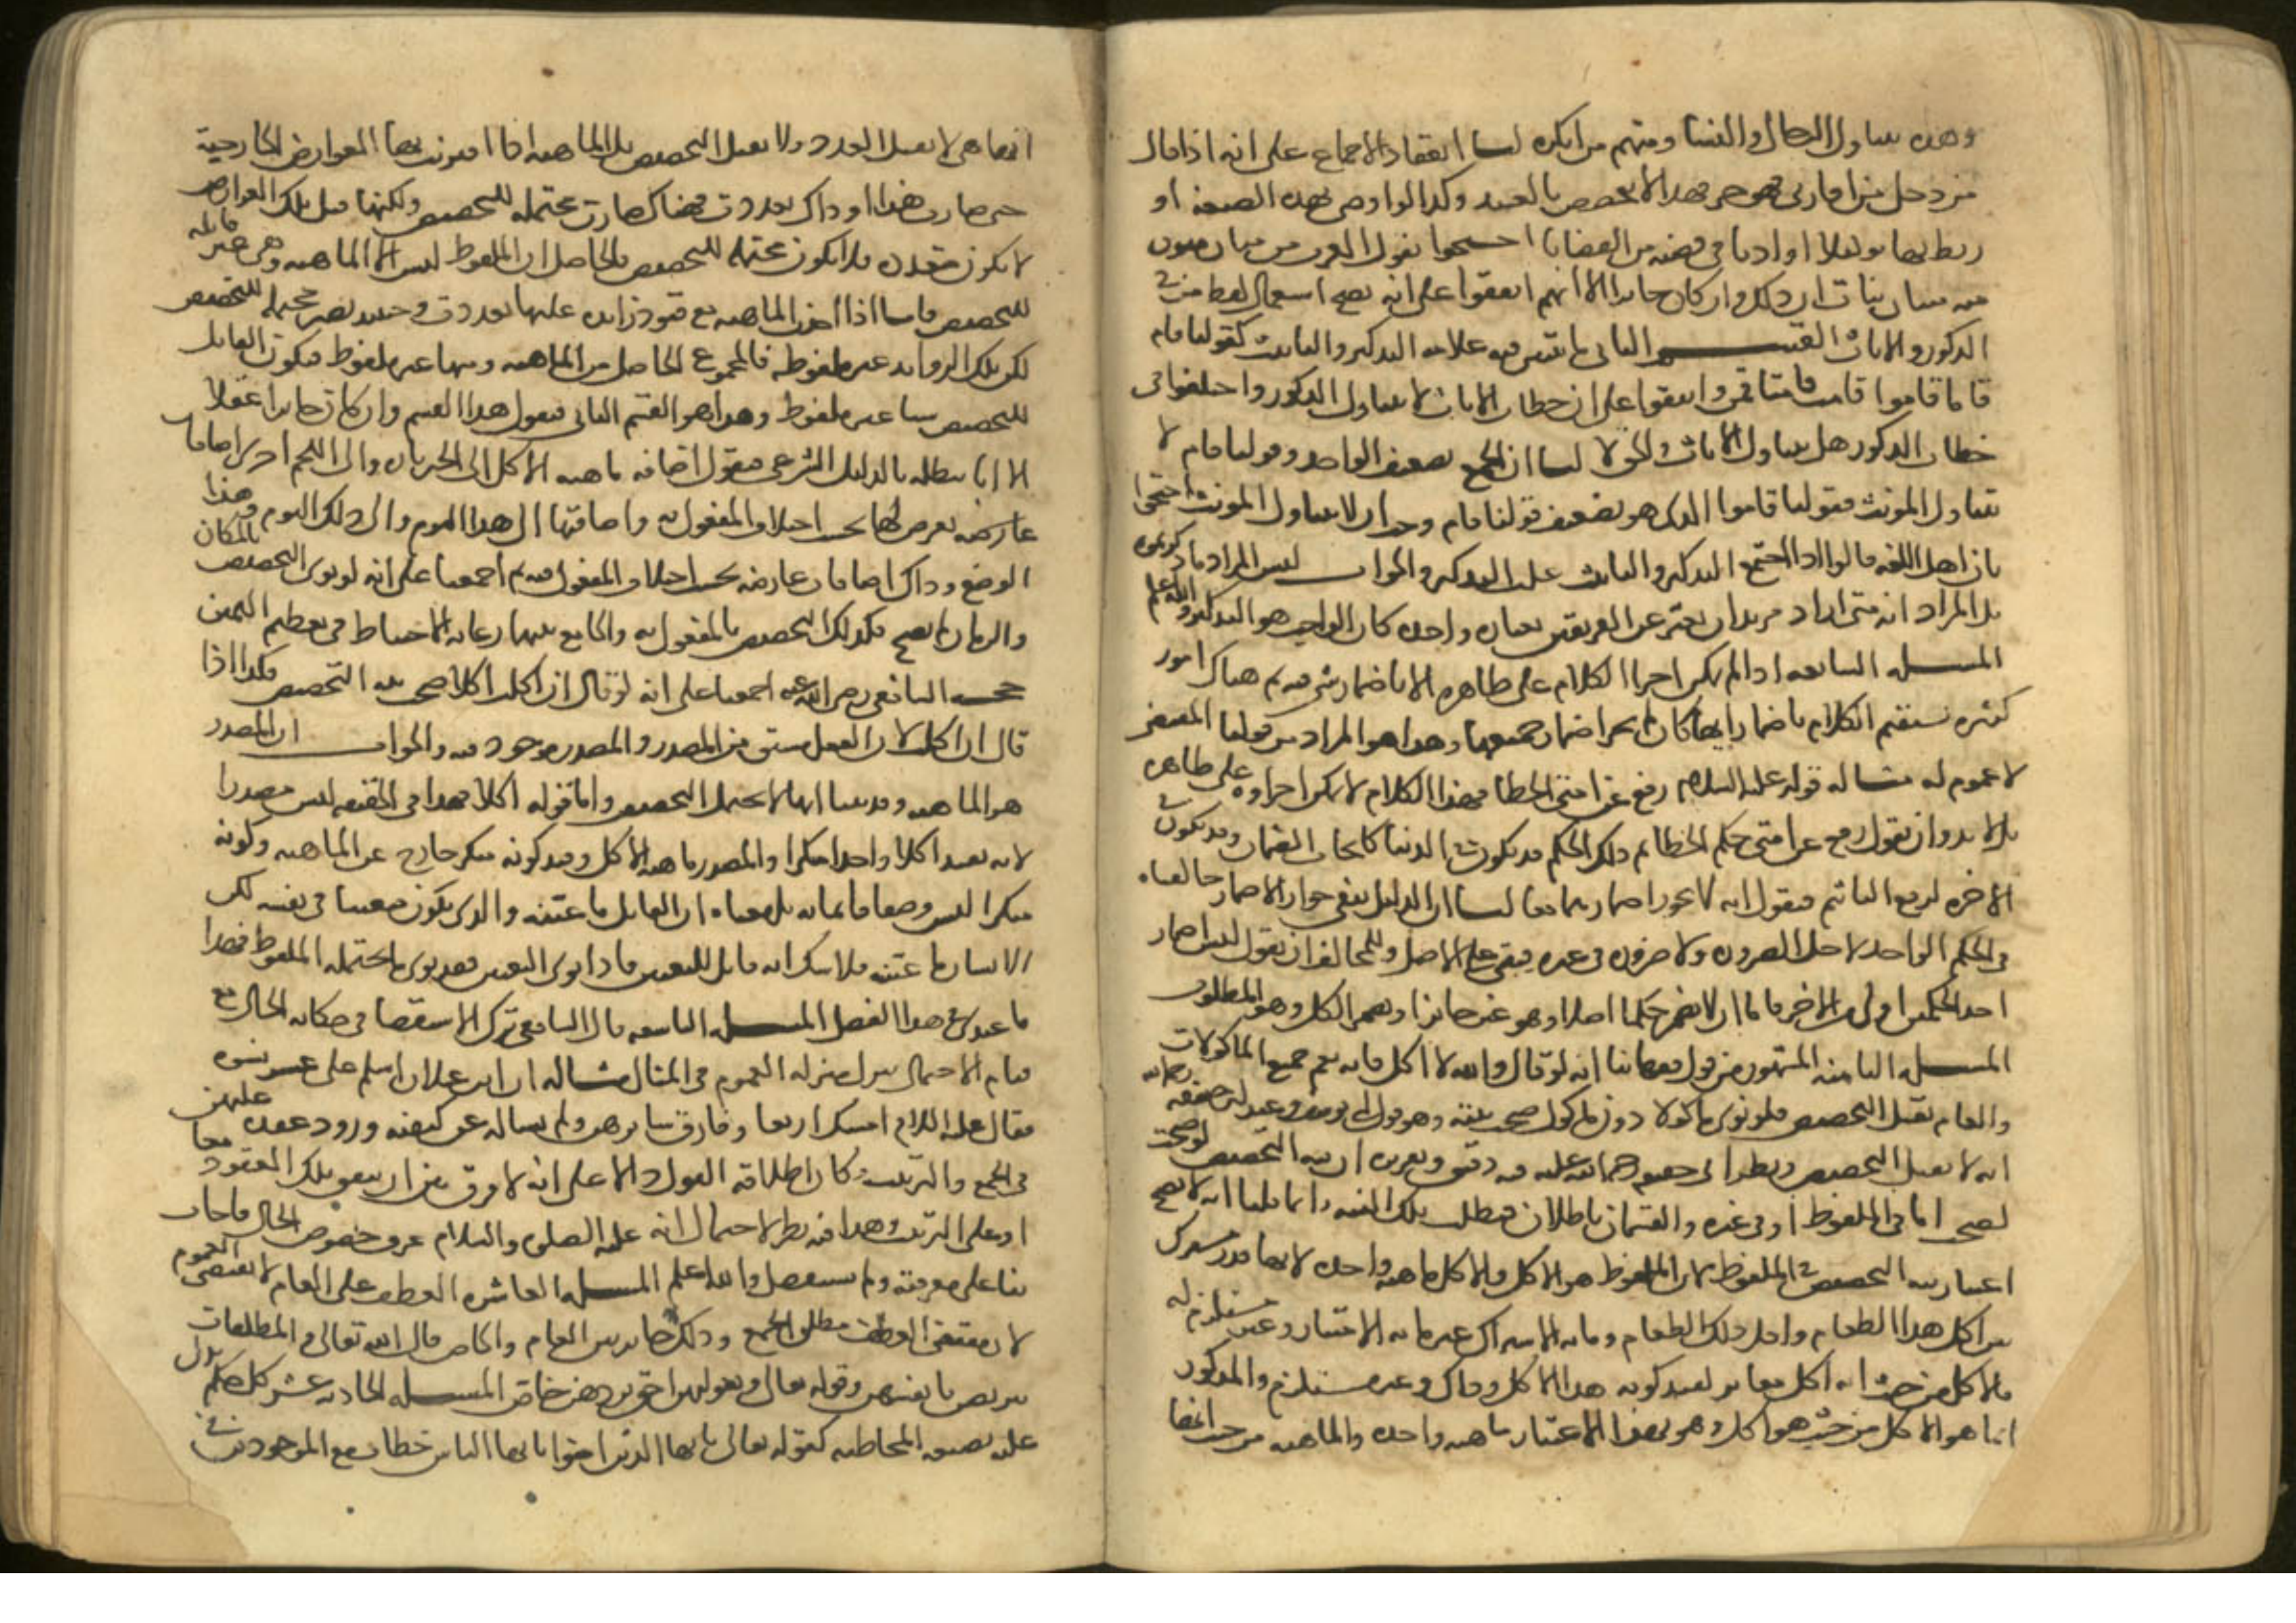 وهذه يتناول الرجال والنساء ومنهم من انكره لنا انعقاد الاجماع على انه اذا قال
من دخل من اقاربي فهو حر فهذا لا يختص بالعبيد وكذا لو اوصى بهذه الصيغة او
ربط بها توكيلا او اذنا في قضية من القضايا احتجوا بقول العرب من منان منون
منه منتان منات ان ذلك وان كان جايزا الا انهم اتفقوا على انه يصح استعمال لفظ من في
الذكور والاناث القسم الثاني ما يتبين فيه علامة التذكير والتانيث كقولنا قام
قاما قاموا قامت قامتا قمن واتفقوا على ان خطاب الاناث لا يتناول الذكور واختلفوا في
خطاب الذكور هل يتناول الاناث والحق لا لنا ان الجمع تضعيف الواحد وقولنا قام لا
يتناول المونث فقولنا قاموا الذي هو تضعيف قولنا قام وجب ان لا يتناول المونث احتجوا
بان اهل اللغة قالوا اذا اجتمع التذكير والتانيث غلب التذكير والجواب ليس المراد ما ذكرتموه
بل المراد انه متى اراد مريد ان يعبر عن الفريقين بعبارة واحدة كان الواجب هو التذكير والله اعلم
المسئلة السابعة اذا لم يمكن اجرا الكلام على ظاهره الا باضمار شي فيه ثم هناك امور
كثيرة يستقيم الكلام باضمار ايها كان لم يجز اضمار جميعها وهذا هو المراد من قولنا المقتضى
لا عموم له مثاله قوله عليه السلام رفع عن امتي الخطا فهذا الكلام لا يمكن اجراوه على ظاهره
بل لا بد وان نقول رفع عن امتي حكم الخطا ثم ذلك الحكم قد يكون في الدنيا كايجاب الضمان وقد يكون في
الاخرة لرفع التاثيم فنقول انه لا يجوز اضمارهما معا لنا ان الدليل ينفي جواز الاضمار خالفناه
في الحكم الواحد لاجل الضرورة ولا ضرورة في غيره فيبقى على الاصل وللمخالف ان يقول ليس اضمار
احد الحكمين اولى من الاخر فاما ان لا يضمر حكما اصلا وهو غير جايز او يضمر الكل وهو المطلوب
المسئلة الثامنة المشهور من قول فقهائنا انه لو قال والله لا اكل فانه يعم جميع الماكولات
والعام يقبل التخصيص فلو نوى ماكولا دون ماكول صحت نيته وهو قول ابي يوسف وعند ابي حنيفة رحمه الله
انه لا يقبل التخصيص ونظر ابي حنيفة رحمة الله عليه فيه دقيق وتقريره ان نية التخصيص لو صحت
لصحت اما في الملفوظ او في غيره والقسمان باطلان فبطلت تلك النية وانما قلنا انه لا يصح
اعتبار نية التخصيص في الملفوظ لان الملفوظ هو الاكل والاكل ماهية واحدة لانها قدر مشترك
بين اكل هذا الطعام واكل ذلك الطعام وما به الاشتراك غير ما به الامتياز وغير مستلزم له
فالاكل من حيث انه اكل مغاير لقيد كونه هذا الاكل وذاك وغير مستلزم والمذكور
انما هو الاكل من حيث هو اكل وهو بهذا الاعتبار ماهية واحدة والماهية من حيث انها
انها هي لا تقبل العدد ولا تقبل التخصيص بل الماهية اذا اقترنت بها العوارض الخارجية
حتى صارت هذا او ذاك تعددت فهناك صارت محتملة للتخصيص ولكنها قبل تلك العوارض
لا تكون متعددة فلا تكون محتملة للتخصيص فالحاصل ان الملفوظ ليس الا الماهية وهي غير قابلة
للتخصيص فاما اذا اخذت الماهية مع قيود زايدة عليها تعددت وحينئذ تصير محتملة للتخصيص
لكن تلك الزوايد غير ملفوظة فالمجموع الحاصل من الماهية ومنها غير ملفوظ فيكون القابل
للتخصيص شيا غير ملفوظ وهذا هو القسم الثاني فنقول هذا القسم وان كان جايزا عقلا
الا انا نبطله بالدليل الشرعي فنقول اضافة ماهية الاكل الى الخبز تارة والى اللحم اخرى اضافات
عارضة تعرض لها بحسب اختلاف المفعول به واضافتها الى هذا اليوم والى ذلك اليوم وهذا
الموضع وذاك اضافات عارضة بحسب اختلاف المفعول فيه ثم اجمعنا على انه لو نوى التخصيص بالمكان
والزمان لم يصح فكذلك التخصيص بالمفعول به والجامع بينهما رعاية الاحتياط في تعظيم اليمين
حجة الشافعي رضي الله عنه اجمعنا على انه لو قال ان اكلت اكلا صحت نية التخصيص فكذا اذا
قال ان اكلت لان الفعل مشتق من المصدر والمصدر موجود فيه والجواب ان المصدر
هو الماهية وقد بينا انها لا تحتمل التخصيص واما قوله اكلا فهذا في الحقيقة ليس مصدرا
لانه يفيد اكلا واحدا منكرا والمصدر ماهية الاكل وقيد كونه منكرا خارج عن الماهية وكونه
منكرا ليس وصفا قايما به بل معناه ان القايل ما عينه والذي يكون معينا في نفسه لكن
الانسان ما عينه فلا شك انه قابل للتعيين فاذا نوى التعيين فقد نوى ما يحتمله الملفوظ فهذا
ما عندي في هذا الفصل المسئلة التاسعة قال الشافعي ترك الاستفصال في حكاية الحال مع
قيام الاحتمال ينزل منزلة العموم في المقال مثاله ان ابن غيلان اسلم على عشر نسوة
فقال عليه السلام امسك اربعا وفارق سايرهن ولم يساله عن كيفية ورود عقده عليهن
في الجمع والترتيب فكان اطلاقه القول دالا على انه لا فرق بين ان يتفق تلك العقود معا
او على الترتيب وهذا فيه نظر لاحتمال انه عليه الصلوة والسلام عرف خصوص الحال فاجاب
بناء على معرفته ولم يستفصل والله اعلم المسئلة العاشرة العطف على العام لا يقتضي العموم
لان مقتضى العطف مطلق الجمع وذلك جايز بين العام والخاص قال الله تعالى والمطلقات
يتربصن بانفسهن وقوله تعالى وبعولتهن احق بردهن خاص المسئلة الحادية عشر كل حكم يدل
عليه بصيغة المخاطبة كقوله تعالى يا ايها الذين امنوا يا ايها الناس خطاب مع الموجودين في